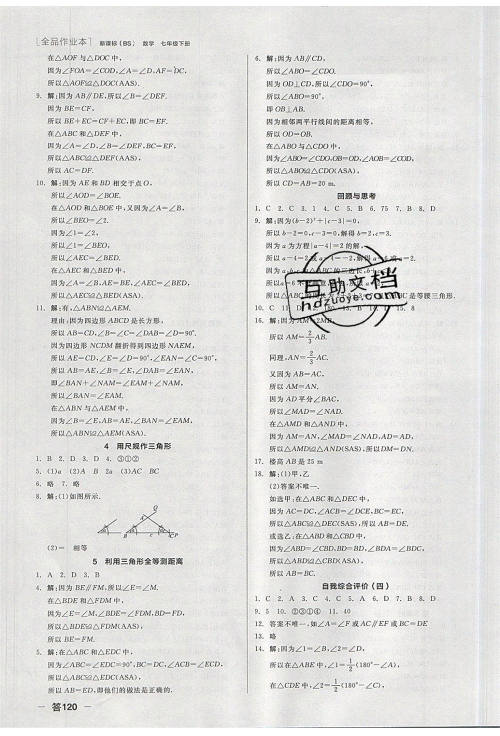 [全品作业本] 新课标(BS) 数学 七年级下册
在△AOF与△DOC中,
因为∠FOA=∠COD,∠A=∠D,AF=DC,
所以△AOF≌△DOC(AAS).
9. 解:因为AB∥DE,所以∠B=∠DEF.
因为BE=CF,
所以BE+EC=CF+EC,即BC=EF.
在△ABC和△DEF中,
因为∠A=∠D,∠B=∠DEF,BC=EF,
所以△ABC≌△DEF(AAS),
所以AC=DF.
10. 解:因为AE和BD相交于点O,
所以∠AOD=∠BOE.
在△AOD和△BOE中,又因为∠A=∠B,
所以∠BEO=∠2.
因为∠1=∠2,
所以∠1=∠BEO,
所以∠AEC=∠BED.
在△AEC和△BED中,
因为∠A=∠B,AE=BE,∠AEC=∠BED,
所以△AEC≌△BED(ASA).
11. 解:有,△ABN≌△AEM.
理由:因为四边形ABCD是长方形,
所以AB=CD,∠B=∠C=∠DAB=∠D=90°.
因为四边形NCDM翻折得到四边形NAEM,
所以AE=CD,∠E=∠D=90°,∠EAN=∠C=90°.
所以AB=AE,∠B=∠E,∠DAB=∠EAN,
即∠BAN+∠NAM=∠EAM+∠NAM,
所以∠BAN=∠EAM.
在△ABN与△AEM中,
因为∠B=∠E,AB=AE,∠BAN=∠EAM,
所以△ABN≌△AEM(ASA).
4 用尺规作三角形
1. B 2. D 3. D 4. ③①②
5. (1)a (2)A B 2a (3)AC BC
6. 略 7. 略
8. 解:(1)如图所示.
(2)= 相等
5 利用三角形全等测距离
1. A 2. D 3. B
4. 解:因为BE∥FM,所以∠E=∠M.
在△BDE和△FDM中,
因为∠E=∠M,∠BDE=∠FDM,BD=FD,
所以△BDE≌△FDM(AAS),
所以BE=FM.
5. 解:在△ABC和△EDC中,
因为∠ABC=∠EDC=90°,BC=DC,∠ACB=∠ECD,
所以△ABC≌△EDC(ASA),
所以AB=ED,即他们的做法是正确的.
答120
6. 解:因为AB∥CD,
所以∠ABO=∠CDO.
因为OD⊥CD,所以∠CDO=90°,
所以∠ABO=90°,
即OB⊥AB.
因为相邻两平行线间的距离相等,
所以OD=OB.
在△ABO与△CDO中,
因为∠ABO=∠CDO,OB=OD,∠AOB=∠COD,
所以△ABO≌△CDO(ASA),
所以CD=AB=20 m.
回顾与思考
1. C 2. C 3. 1 4. C 5. B 6. 75 7. B 8. D
9. 解:因为(b-2)²+|c-3|=0,
所以b-2=0,c-3=0,解得b=2,c=3.
因为a为方程|a-4|=2的解,
互助文档
hdzuoye.com
所以AM=2/3AB.
同理,AN=2/3AC.
又因为AB=AC,
所以AM=AN.
因为AD平分∠BAC,
所以∠MAD=∠NAD.
在△AMD和△AND中,
因为AM=AN,∠MAD=∠NAD,AD=AD,
所以△AMD≌△AND(SAS),所以DM=DN.
17. 楼高AB是25 m
18. 解:(1)甲,乙
(2)答案不唯一.
如选甲:在△ABC和△DEC中,
因为AC=DC,∠ACB=∠DCE,BC=EC,
所以△ABC≌△DEC(SAS),所以AB=DE.
或选乙:在△ABD和△CBD中,
因为∠ABD=∠CBD,BD=BD,∠BDA=∠BDC,
所以△ABD≌△CBD(ASA),
所以AB=BC.
自我综合评价(四)
1. C 2. A 3. C 4. C 5. A 6. D 7. B 8. D
9. 5 10. ②③①④ 11. 40
12. 答案不唯一,如∠A=∠F或AC∥EF或BC=DE
13. 略
14. 解:因为∠1=∠B,∠2=∠D,
所以在△ABE中,∠1=1/2(180°-∠A),
在△CDE中,∠2=1/2(180°-∠C),